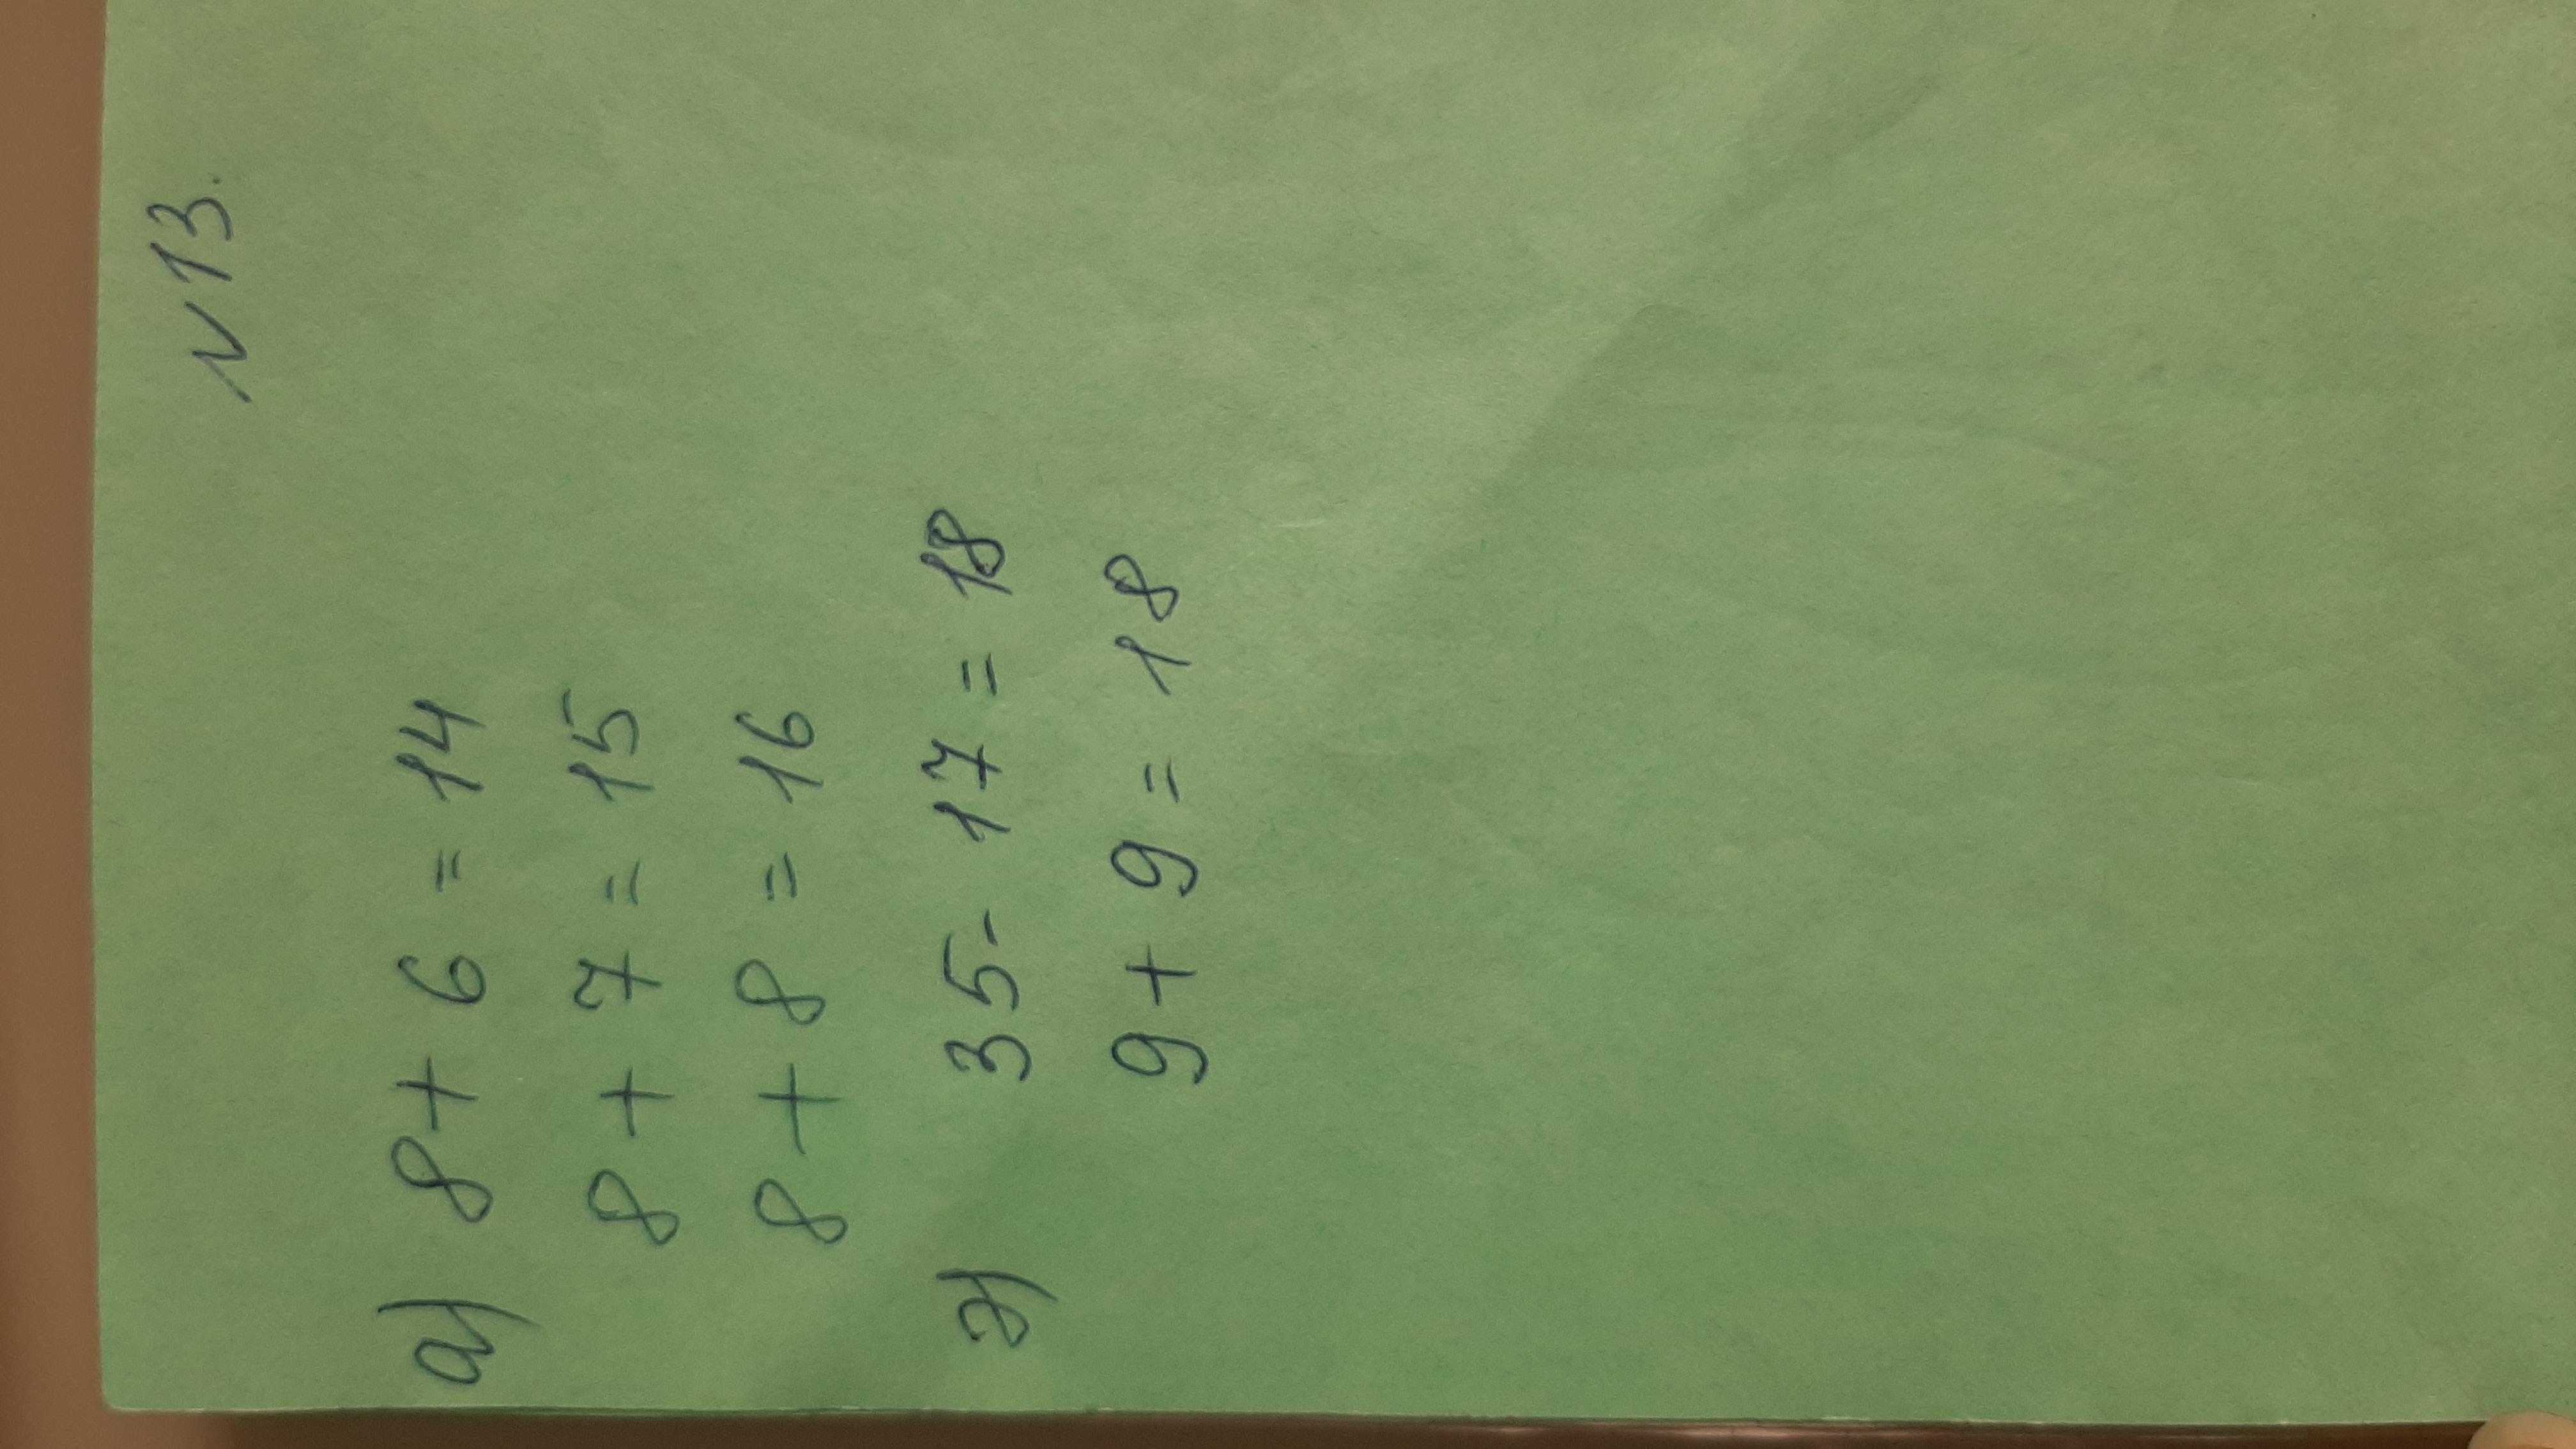 N 13.
а) 8 + 6 = 14
8 + 7 = 15
8 + 8 = 16
д) 35 - 17 = 18
9 + 9 = 18